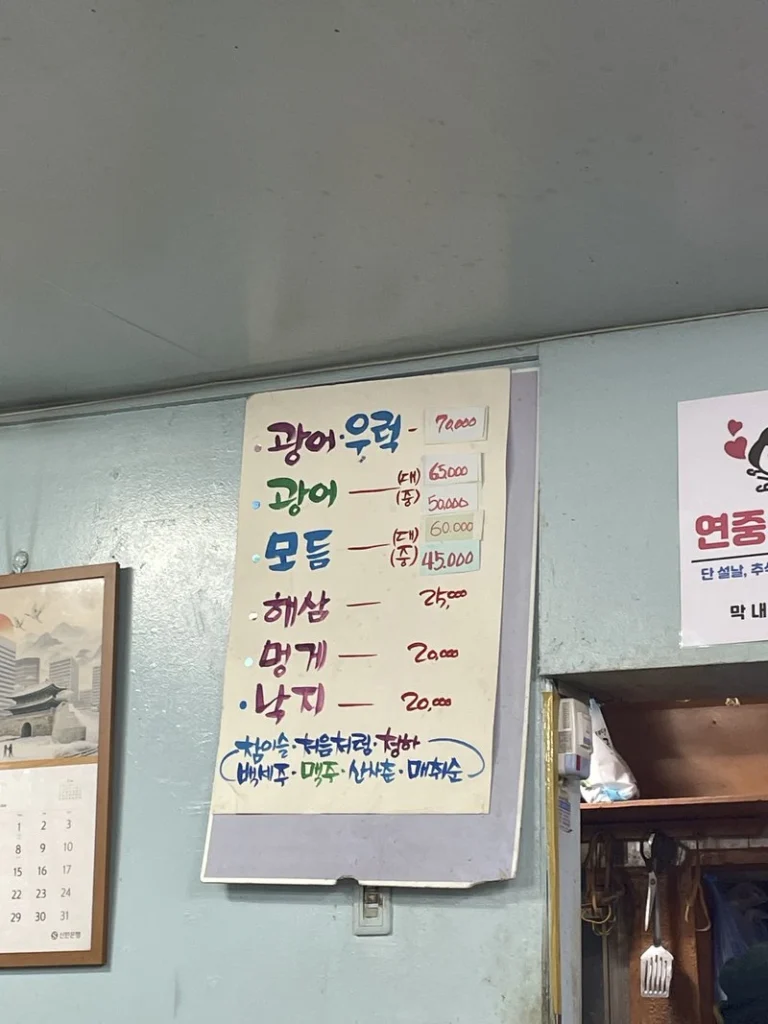 광어·우럭 - 70,000
광어 — (대) 65,000
(중) 50,000
모듬 — (대) 60,000
(중) 45,000
해삼 — 25,000
멍게 — 20,000
낙지 — 20,000
참이슬·처음처럼·청하
백세주·맥주·산사춘·매취순
연중
단 설날, 추석
막 내
1 2 3
8 9 10
15 16 17
22 23 24
29 30 31
신한은행